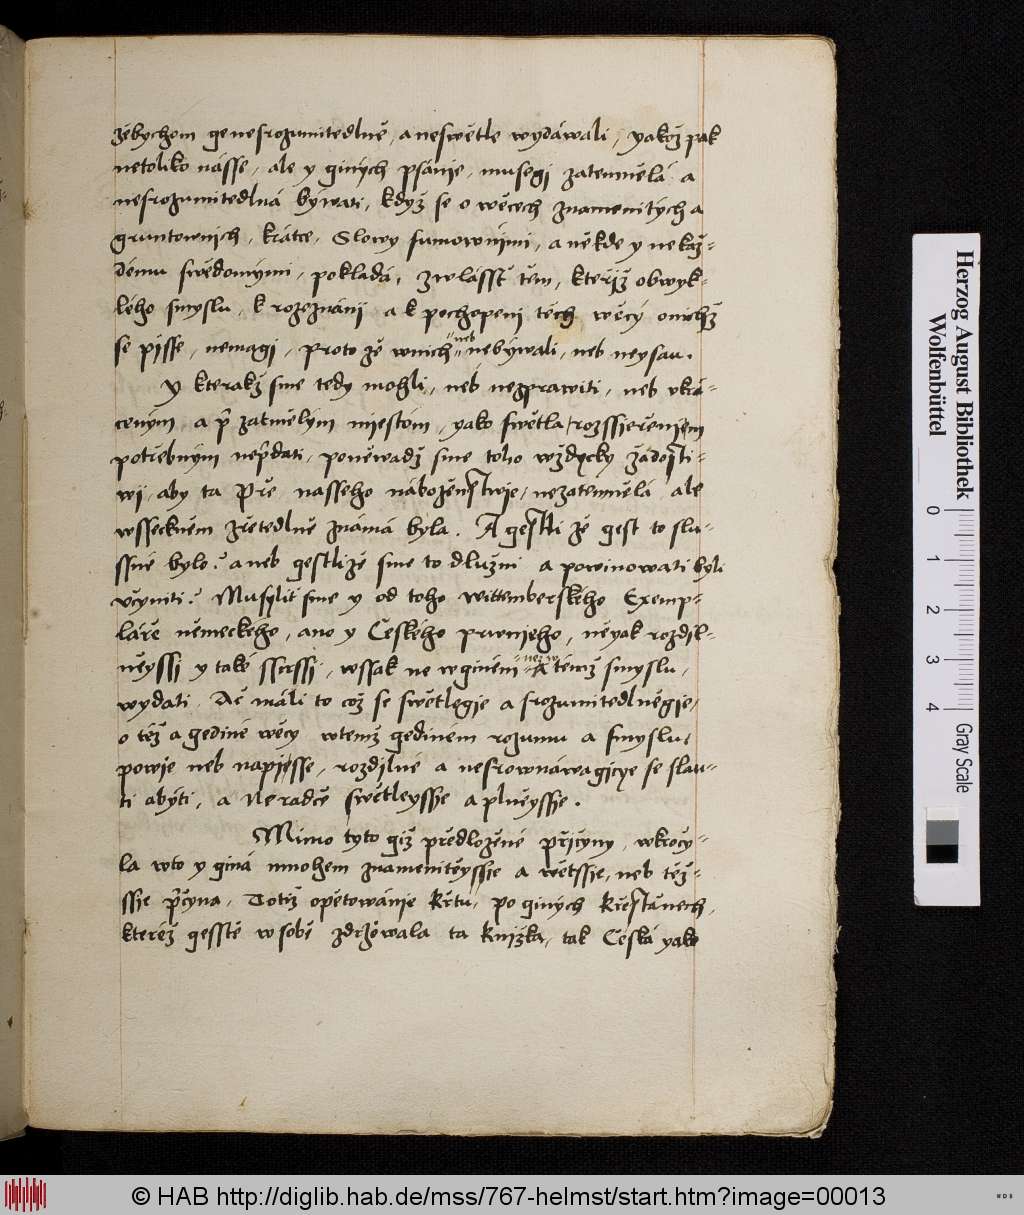 žebychom ge nesrozumitedlně, a neswětle wydáwali, yakož pak
netoliko násse, ale y giných psánije, musegi zatemnělá a
nesrozumitedlná býwati, když se o wěcech znamenitých a
gruntownich, krátce, Slowy sumownimi, a někde y ne kaž-
démů swědomými, pokladá, zwlásst těm, kterijž obwyk-
lého smyslu, k rozeznánij a k pochopeni těch wěcý onichž
se pijsse, nemagi, proto že wnich neb nebýwali, neb neysau.
Y kterakž sme tedy mohli, neb nezprawiti, neb vkrá-
ceným, a př zatmělým miestóm, yako swětla rozssijeřenijem
potřebným nepřdati, poněwadž sme toho wždycky žádosti-
wij, aby ta Pře nasseho náboženstwije, nezatemnělá, ale
wssechněm zřetedlně známá byla. A gestli že gest to slu-
ssné bylo? aneb gestliže sme to dlužni a powinowati byli
včyniti? Musylit sme y od toho wittemberského Exemp-
láře německého, ano y Českého prwnijeho, neyak rozdil-
něyssi y také ssirssi, wssak ne wginém než w témž smyslu,
wydati. Ač máli to což se swětlegije a srozumitedlněgije,
o též a gediné wěcy wtemž gediném rozumu a smyslu,
powije neb napijsse, rozdijlne a nesrownáwagicýe se slau-
ti abýti, a Ne radče swětleyssije a plněyssije.
Mimo tyto giž předložené přijčyny, wkročy-
la wto y giná mnohem znamenitěyssije a wětssije, neb těž-
ssije přčyna, Totiž opětowánije Křtu, po giných Křestanech,
kteréž gesstě w sobě zdržowala ta knijžka, tak Česká yako
Herzog August Bibliothek
Wolfenbüttel
0 1 2 3 4
Gray Scale
© HAB http://diglib.hab.de/mss/767-helmst/start.htm?image=00013